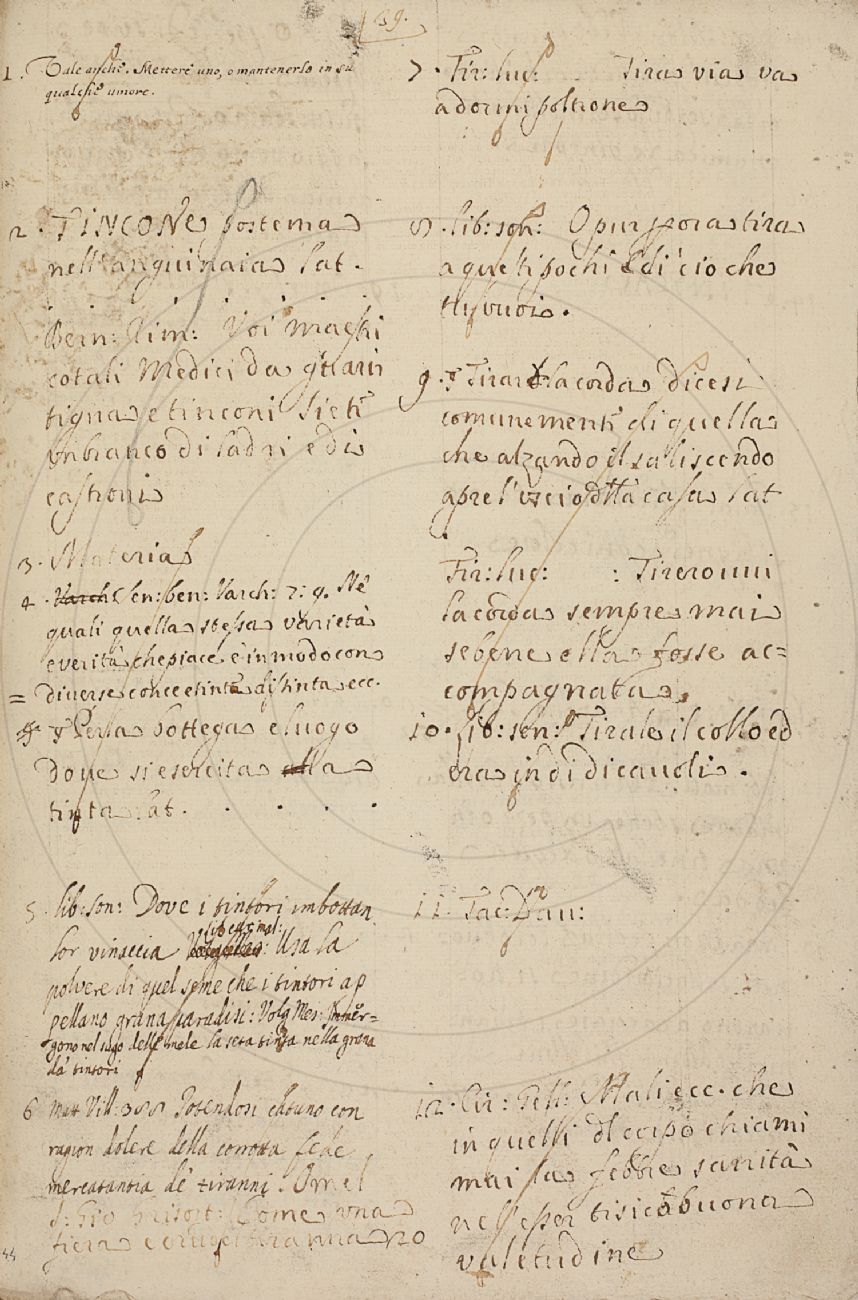 39.
1. Tale anche. Mettere uno, o mantenerlo in su
qualche umore.
2. TINCONE Postema
nell'anguinaia Lat.
Bern: Rim: Voi maghi
cotali Medici da
tigna e tinconi siete
un branco di ladri e di
castroni
3. Materia
4. Varch Sen: ben: Varch: 7: 9. Ne
quali quella stessa varietà
e verità che piace è in modo con
= diverse conce e tinte distinta ecc.
§ Per la bottega e luogo
dove si esercita alla
tinta Lat. . . . .
5. lib: son: Dove i tintori imbottan
lor vinaccia lib cur mal: Usa la
polvere di quel seme che i tintori ap
pellano grana paradisi: Volg Mes: Immer-
gono nel sugo delle mele la seta tinta nella grana
da tintori
6. Matt Vill: Potendosi catuno con
ragion dolere della corrotta fede
mercatantia de' tiranni. Omel
S: Gio Grisost: Come una
fiera e crudel
7. Fir: luc: Tira via va
a dormi poltrone
8. lib: son: O pur spora tira
a questi pochi e di ciò che
tu vuoi.
9. § Tirar la corda dicesi
comunemente di quella
che alzando il saliscendo
apre l'uscio della casa Lat
Fir: luc: : Tireronni
la corda sempre mai
se bene ella fosse ac=
compagnata.
10. lib: son: Tirale il collo ed
era indi di cavoli.
11. Tac: Dav:
12. Cir: Gell: Mali ecc. che
in quelli del corpo chiami
mai la febbre sanità
nè l'esser tisico buona
valetudine